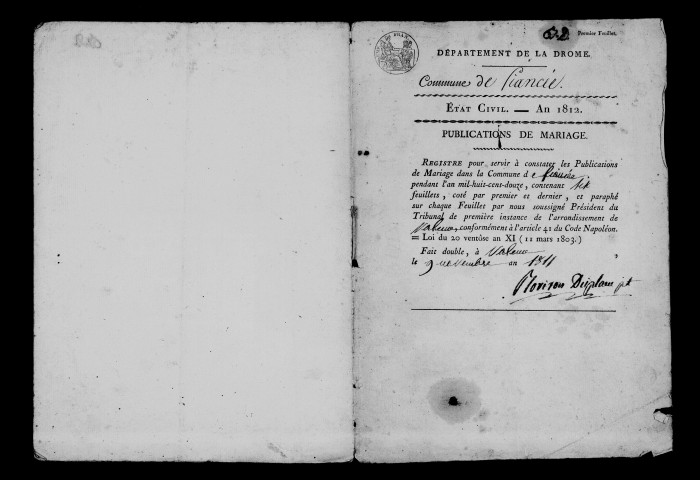 Premier Feuillet.
DÉPARTEMENT DE LA DROME.
Commune de Ciancié.
ÉTAT CIVIL. — AN 1812.
PUBLICATIONS DE MARIAGE.
REGISTRE pour servir à constater les Publications
de Mariage dans la Commune de
pendant l'an mil-huit-cens-douze, contenant six
feuillets, coté par premier et dernier, et paraphé
sur chaque Feuillet par nous soussigné Président du
Tribunal de première instance de l'arrondissement de
Valence, conformément à l'article 41 du Code Napoléon.
= Loi du 20 ventôse an XI (11 mars 1803.)
Fait double, à Valence
le 9 novembre an 1811